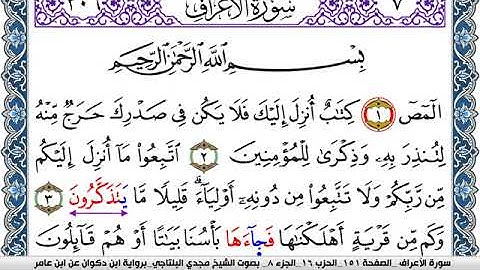 ٧ سُورَةُ الأَعْرَافِ
بِسْمِ اللَّهِ الرَّحْمَٰنِ الرَّحِيمِ
الٓمٓصٓ ١ كِتَٰبٌ أُنزِلَ إِلَيْكَ فَلَا يَكُن فِى صَدْرِكَ حَرَجٌ مِّنْهُ
لِتُنذِرَ بِهِۦ وَذِكْرَىٰ لِلْمُؤْمِنِينَ ٢ ٱتَّبِعُوا۟ مَآ أُنزِلَ إِلَيْكُم
مِّن رَّبِّكُمْ وَلَا تَتَّبِعُوا۟ مِن دُونِهِۦٓ أَوْلِيَآءَۗ قَلِيلًا مَّا يَتَذَكَّرُونَ ٣
وَكَم مِّن قَرْيَةٍ أَهْلَكْنَٰهَا فَجَآءَهَا بَأْسُنَا بَيَٰتًا أَوْ هُمْ قَآئِلُونَ
سورة الأعراف_الصفحة ١٥١_الحزب ١٦_الجزء ٨_ بصوت الشيخ مجدي البلتاجي_برواية ابن ذكوان عن ابن عامر